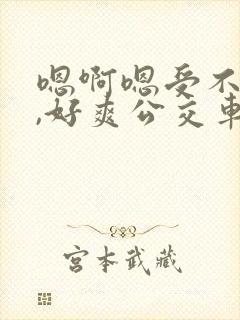 嗯啊嗯受不
,好爽公交车
宫本武藏